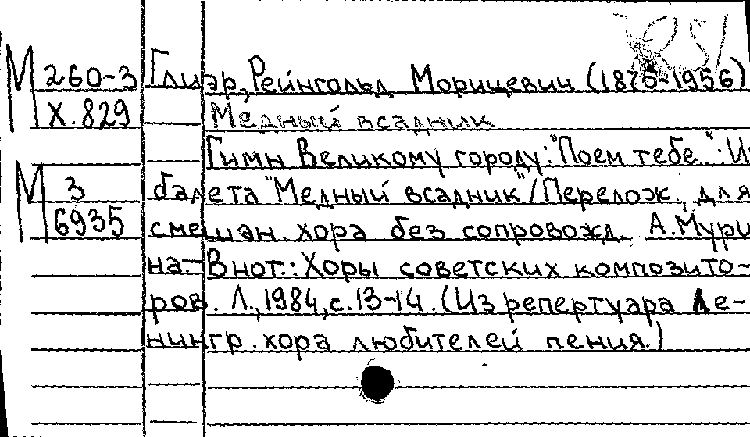 М 260-3 Глиэр, Рейнгольд Морицевич (1875-1956)
X.829 Медный всадник
Гимн Великому городу: "Поем тебе..": Из
М 3 балета "Медный всадник"/Перелож. для
6935 смешан. хора без сопровожд. А.Мури
на.- В нот.: Хоры советских композито-
ров. Л., 1984, с.13-14. (Из репертуара Ле-
нингр. хора любителей пения.)